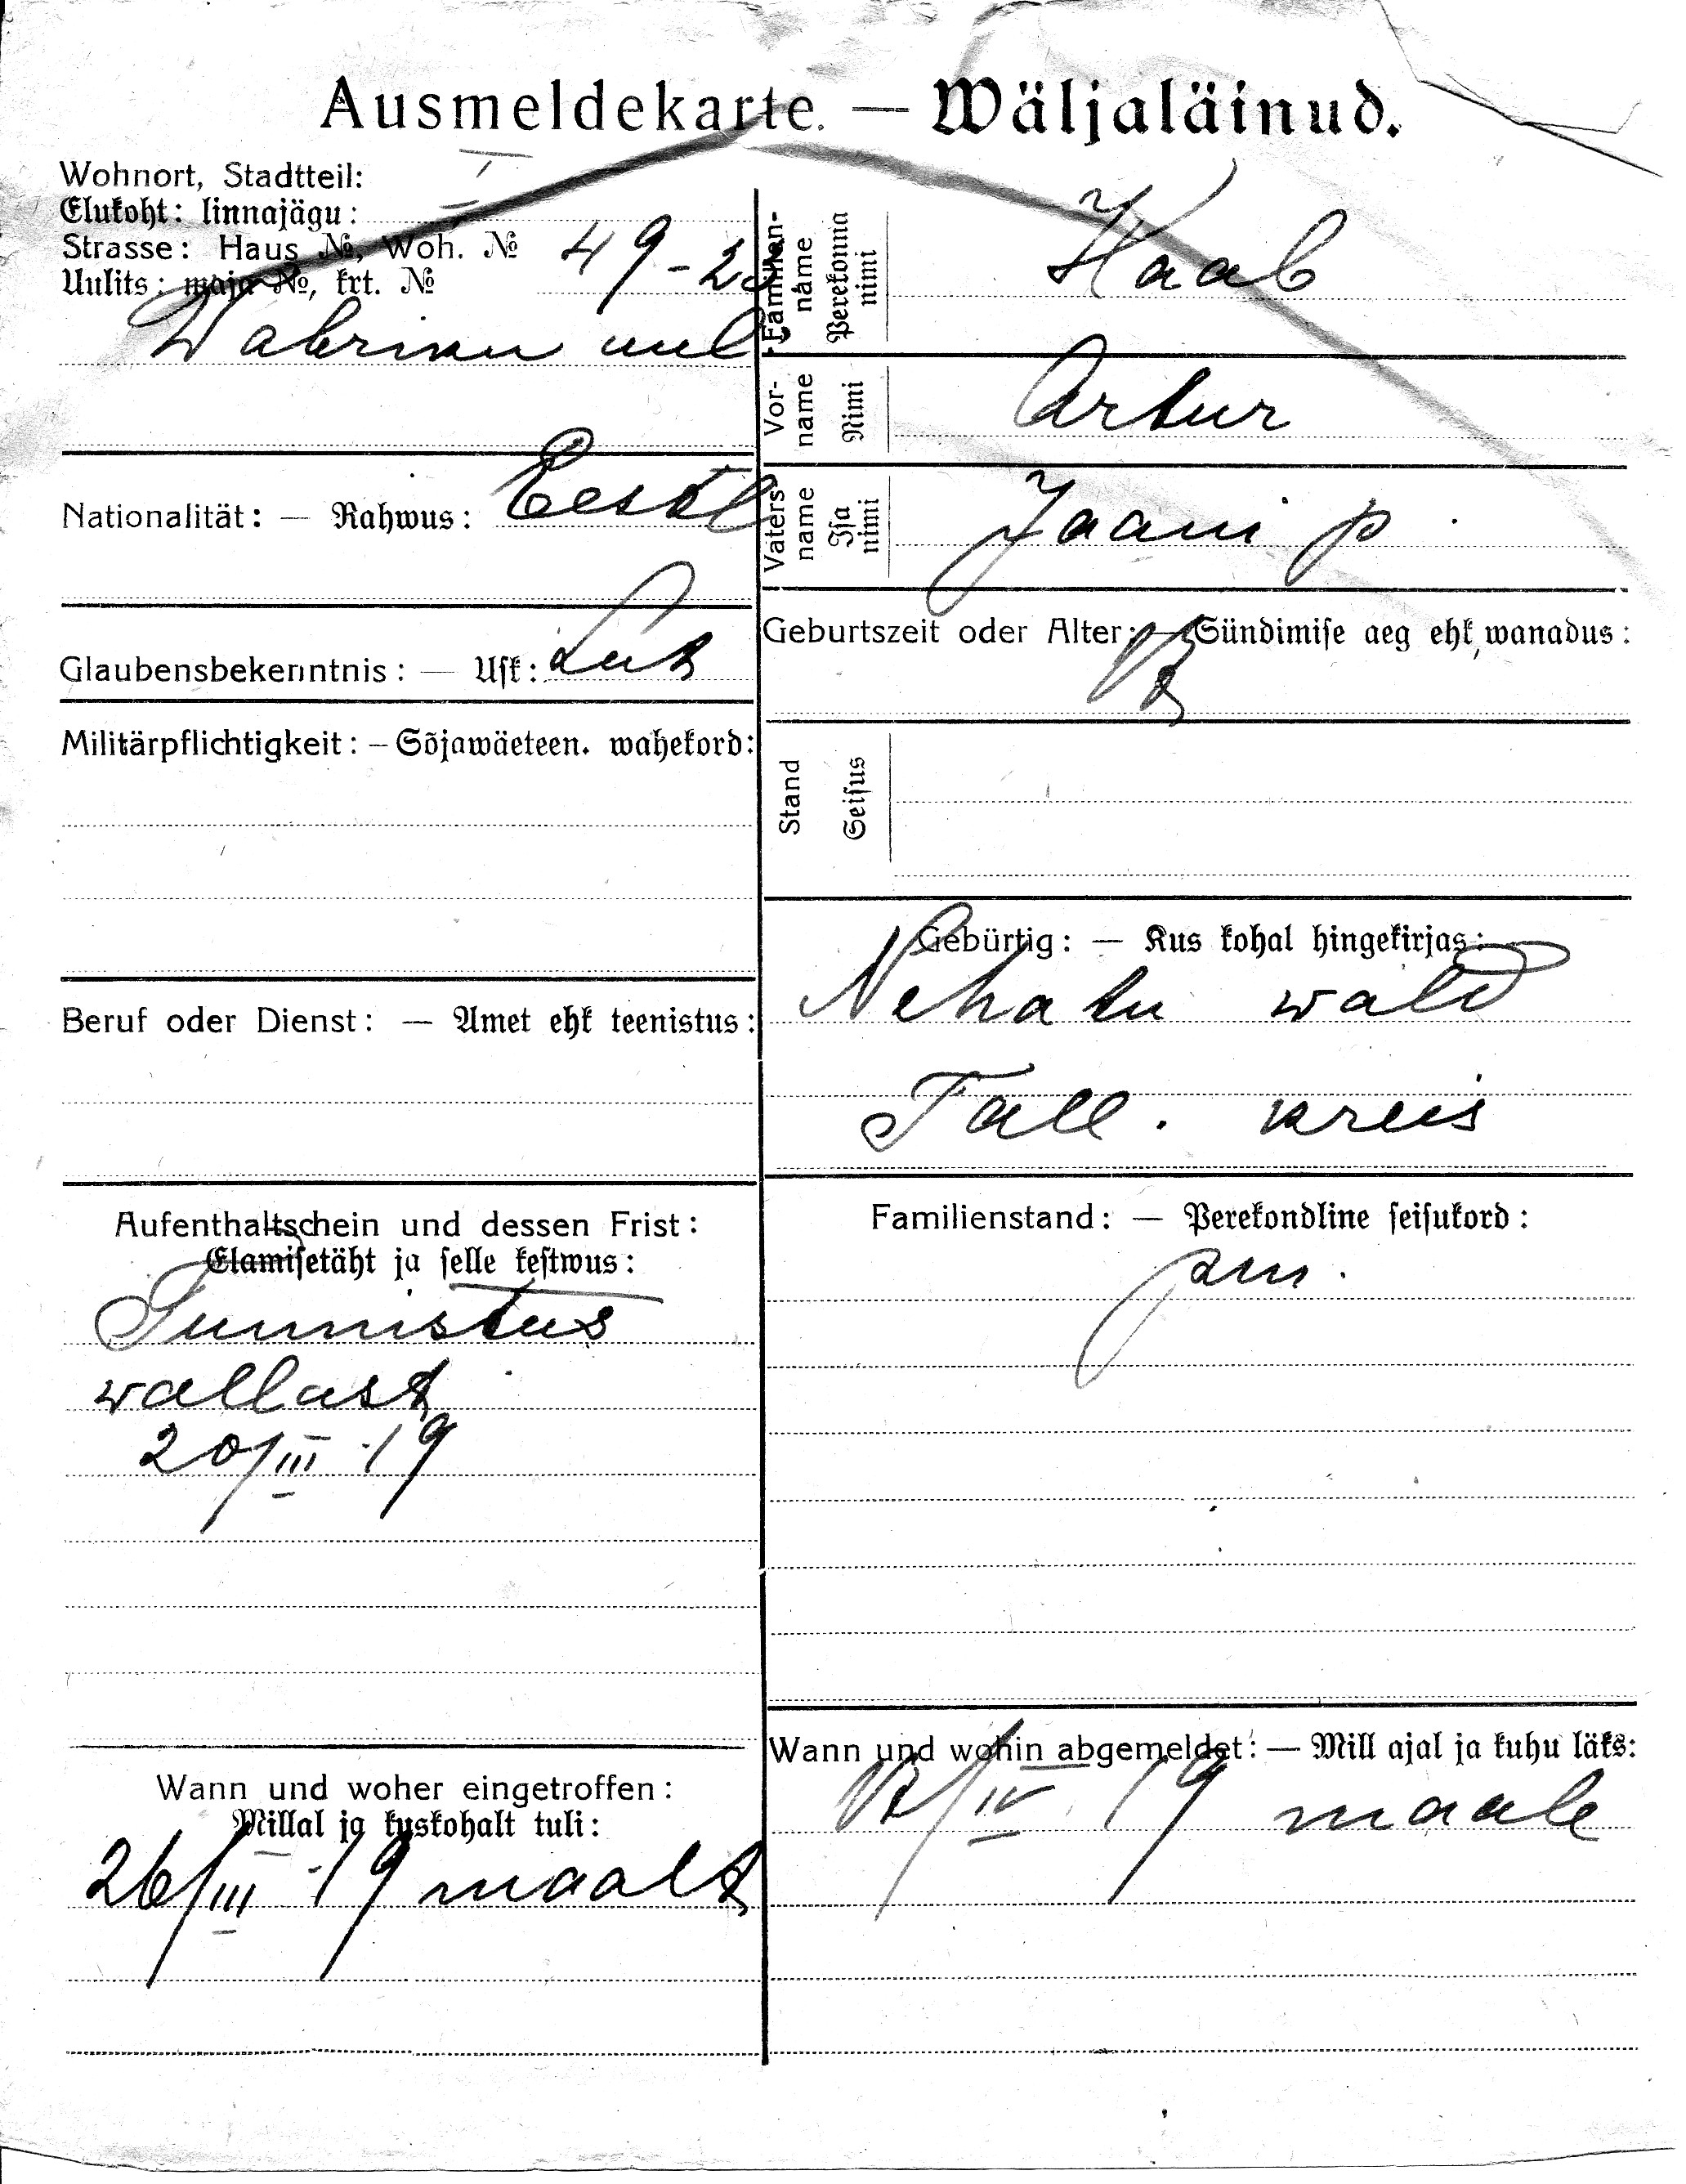 Ausmeldekarte. — Wäljaläinud.
Wohnort, Stadtteil: I
Elukoht: linnajägu:
Strasse: Haus №, Woh. № 49-25
Uulits: maja №, krt. №
Wabriku uul.
Nationalität: — Rahwus: Eestl
Glaubensbekenntnis: — Usk: Lut
Militärpflichtigkeit: — Sõjawäeteen. wahekord:
Beruf oder Dienst: — Amet ehk teenistus:
Aufenthaltschein und dessen Frist:
Elamisetäht ja selle kestwus:
Tunnistus
wallast
20/III 19
Wann und woher eingetroffen:
Millal ja kuskohalt tuli:
26/III 19 maalt
Familienname Perekonna nimi Haab
Vorname Nimi Artur
Vatersname Isa nimi Jaani p
Geburtszeit oder Alter: — Sündimise aeg ehk wanadus:
Stand Seisus
Gebürtig: — Kus kohal hingekirjas:
Nehatu wald
Tall. kreis
Familienstand: — Perekondline seisukord:
pm.
Wann und wohin abgemeldet: — Mill ajal ja kuhu läks:
/IV 19 maale